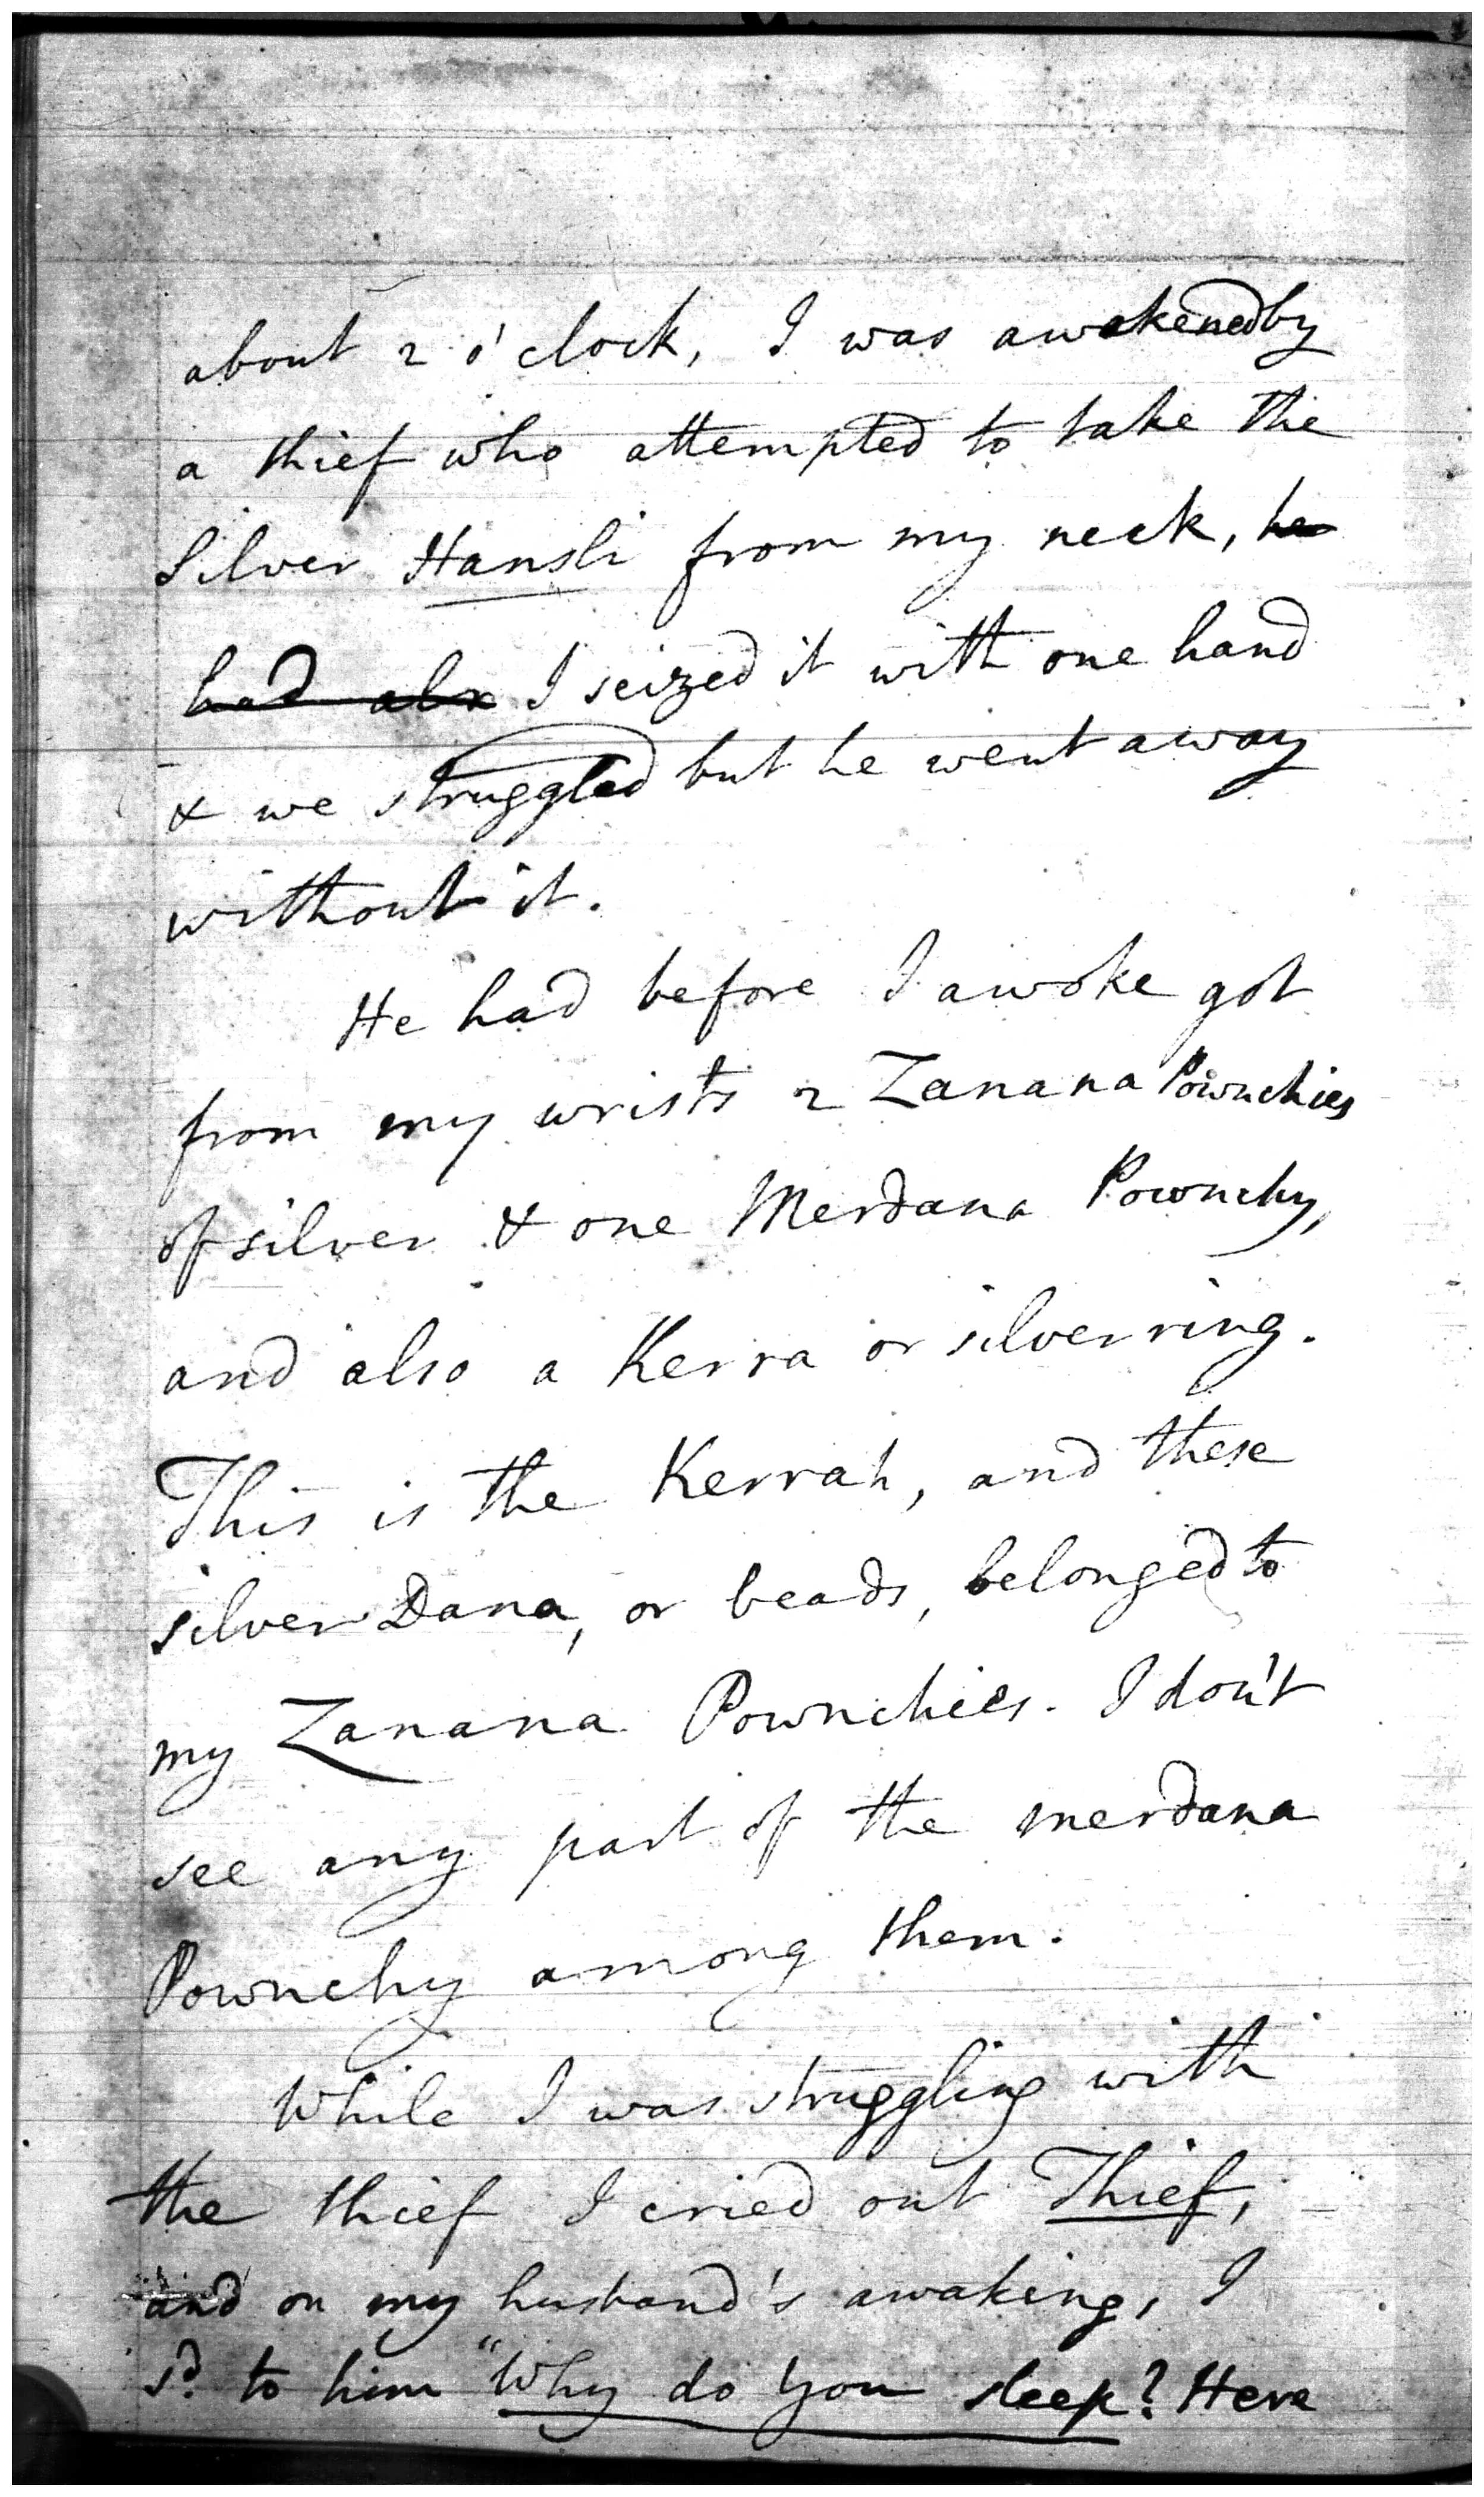 about 2 o'clock, I was awakened by
a thief who attempted to take the
Silver Hansli from my neck, he
had alr I seized it with one hand
& we struggled but he went away
without it.
He had before I awoke got
from my wrists 2 Zanana Pownchies
of silver & one Merdana Pownchy,
and also a Kerra or silver ring.
This is the Kerrah, and these
silver Dana, or beads, belonged to
my Zanana Pownchies. I don't
see any part of the merdana
Pownchy among them.
While I was struggling with
the thief I cried out Thief,
and on my husband's awaking, I
sd. to him "Why do you sleep? Here